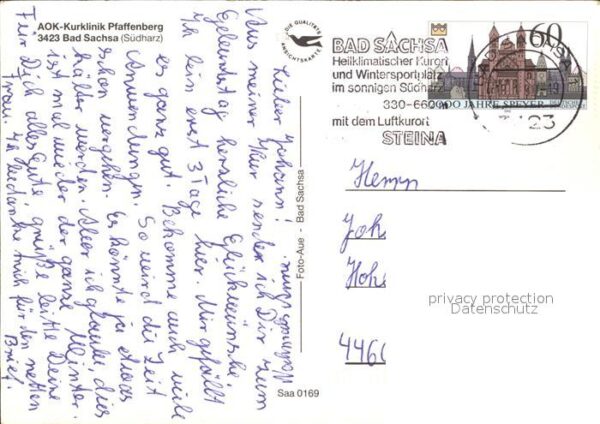 AOK-Kurklinik Pfaffenberg
3423 Bad Sachsa (Südharz)
DIE QUALITÄTS
ANSICHTSKARTE
BAD SACHSA
Heilklimatischer Kurort
und Wintersportplatz
im sonnigen Südharz
330-660
mit dem Luftkurort
STEINA
60
2000 JAHRE SPEYER
3423
Lieber Johann!
Aus meiner Kur sende ich Dir zum
Geburtstag herzliche Glückwünsche.
Ich bin erst 3 Tage hier. Mir gefällt
es ganz gut. Bekomme auch viele
Anwendungen. So wird die Zeit
schon vergehen. Es könnte ja etwas
kälter werden. Aber ich glaube, dies
ist mal wieder der ganze Winter.
Für Dich alles Gute, grüße bitte Deine
Frau. Ich bedanke mich für den netten
Brief.
Foto-Aue - Bad Sachsa
Saa 0169
Herrn
Joh
Hohs
446
privacy protection
Datenschutz